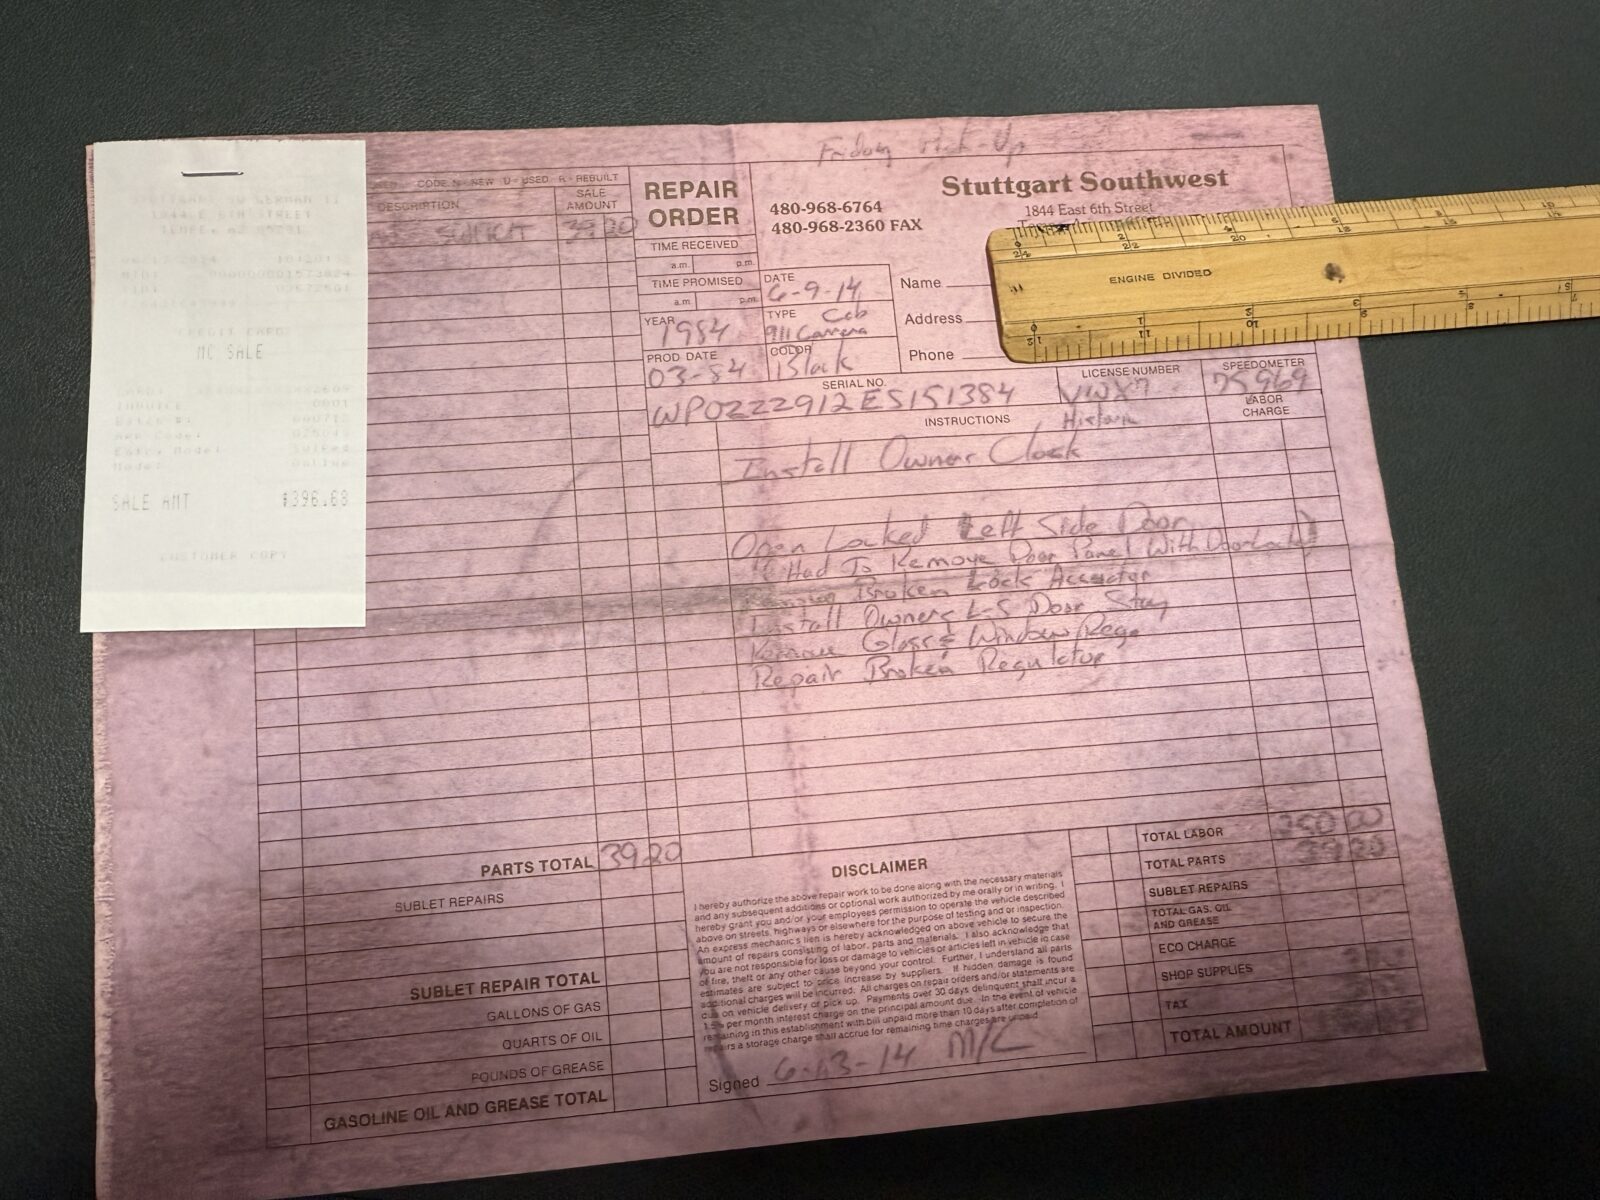 Friday Pick-Up
CODE N - NEW U - USED R - REBUILT
DESCRIPTION
SALE AMOUNT
Switch 39 20
REPAIR ORDER
480-968-6764
480-968-2360 FAX
Stuttgart Southwest
1844 East 6th Street
TIME RECEIVED
a.m. p.m.
TIME PROMISED
a.m. p.m.
DATE 6-9-14
YEAR 1984
TYPE Cab
911 Carrera
PROD DATE 03-84
COLOR Black
Name
Address
Phone
SERIAL NO.
LICENSE NUMBER
SPEEDOMETER
WP0ZZZ912ES151384
75969
INSTRUCTIONS
Historic
LABOR CHARGE
Install Owner Clock
Open Locked Left Side Door
Had To Remove Door Panel With Door Locked
Broken Lock
Install Owners L-S Door Stay
Remove Glass & Window Reg.
Repair Broken Regulator
PARTS TOTAL 39 20
SUBLET REPAIRS
SUBLET REPAIR TOTAL
GALLONS OF GAS
QUARTS OF OIL
POUNDS OF GREASE
GASOLINE OIL AND GREASE TOTAL
DISCLAIMER
I hereby authorize the above repair work to be done along with the necessary materials
and any subsequent additions or optional work authorized by me orally or in writing. I
hereby grant you and/or your employees permission to operate the vehicle described
above on streets, highways or elsewhere for the purpose of testing and/or inspection.
An express mechanic's lien is hereby acknowledged on above vehicle to secure the
amount of repairs consisting of labor, parts and materials. I also acknowledge that
you are not responsible for loss or damage to vehicles or articles left in vehicle in case
of fire, theft or any other cause beyond your control. Further, I understand all parts
estimates are subject to price increase by suppliers. If hidden damage is found
additional charges will be incurred. All charges on repair orders and/or statements are
due on vehicle delivery or pick up. Payments over 30 days delinquent shall incur a
1.5% per month interest charge on the principal amount due. In the event of vehicle
remaining in this establishment with bill unpaid more than 10 days after completion of
repairs a storage charge shall accrue for remaining time charges are unpaid.
Signed 6-13-14 M/C
TOTAL LABOR
TOTAL PARTS 39 20
SUBLET REPAIRS
TOTAL GAS, OIL AND GREASE
ECO CHARGE
SHOP SUPPLIES
TAX
TOTAL AMOUNT
1844 E 6TH STREET
CREDIT CARD
MC SALE
INVOICE 0001
SALE AMT $396.68
CUSTOMER COPY
ENGINE DIVIDED